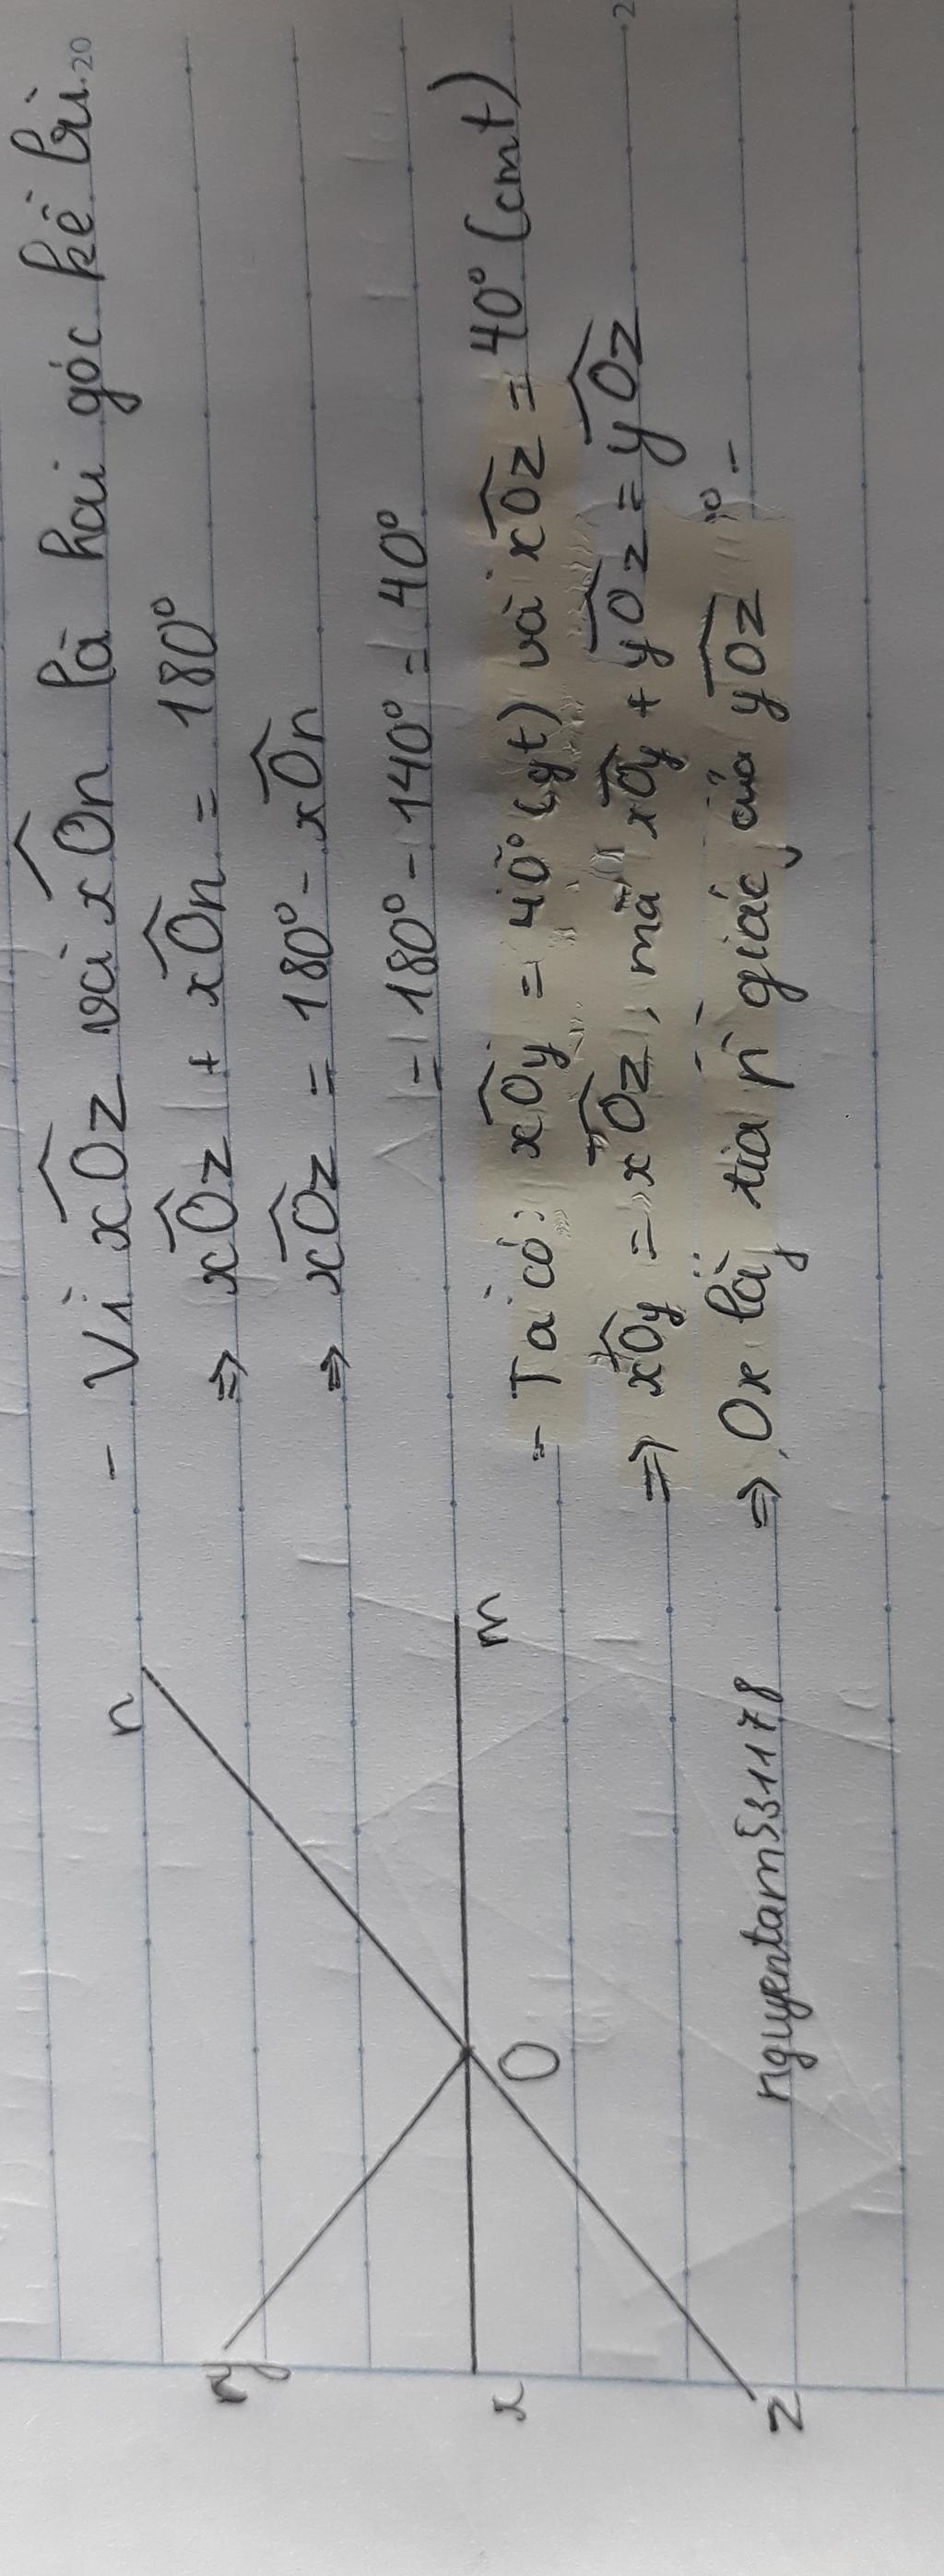 - Vì xOz và xOn là hai góc kề bù.
=> xOz + xOn = 180°
=> xOz = 180° - xOn
= 180° - 140° = 40°
- Ta có: xOy = 40° (gt) và xOz = 40° (cmt)
=> xOy = xOz, mà xOy + yOz = yOz
=> Ox là tia p giác của yOz
n
m
O
y
x
z
nguyentam531178